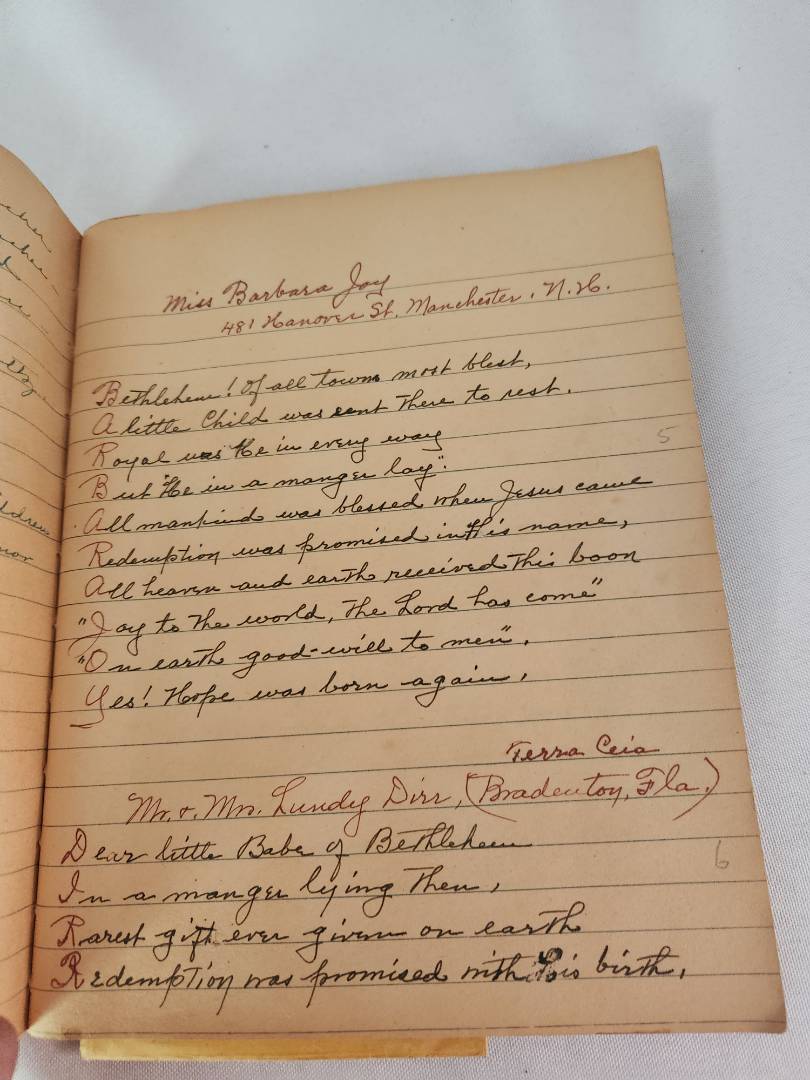 Miss Barbara Joy
481 Hanover St. Manchester, N.H.
Bethlehem! Of all towns most blest,
A little Child was sent there to rest.
Royal was He in every way
But "He in a manger lay".
All mankind was blessed when Jesus came
Redemption was promised in His name,
All heaven and earth received this boon
"Joy to the world, the Lord has come"
"On earth good-will to men",
Yes! Hope was born again,
5
Terra Ceia
Mr. & Mrs. Lundy Dirr, (Bradenton, Fla.)
Dear little Babe of Bethlehem
In a manger lying then,
Rarest gift ever given on earth
Redemption was promised with His birth,
6